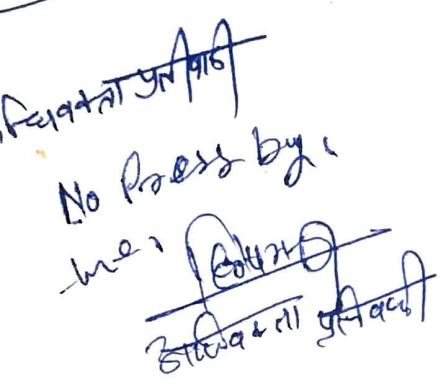 धिवक्ता प्रतिवादी
No Press by.
me.
अधिवक्ता प्रतिवादी